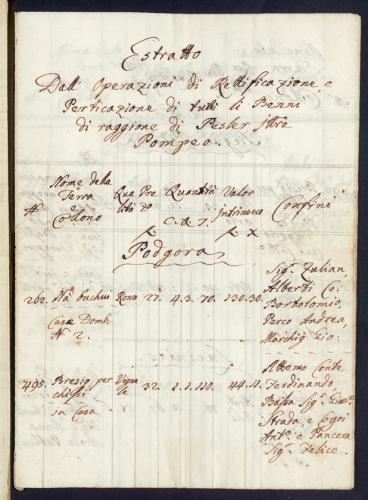 Estratto
Dall' Operazioni di Rettificazione, e
Perticazione di tutti li Benni
di raggione di Pesler
Pompeo.
Nome della
Terra
o Colono
Qua
lità
Pre
zo
Quantità
C. a T.
Valor
Intrinseco
Confini
Podgora
262. Na buchui Ronco 27. 4.3. 70. 130.30.
Casa Dom:
N 2.
Sig. Zulian,
Alberti Co:
Bortolomio,
Perco Andrea,
Marchig Gio:
495. Bresio per
in Casa
32. 1.1.110. 44.11.
Attemo Conte
Ferdinando,
Bassa Sig.
Strada, e Cogoi
Ant. e Pancera
Sig. Felice.